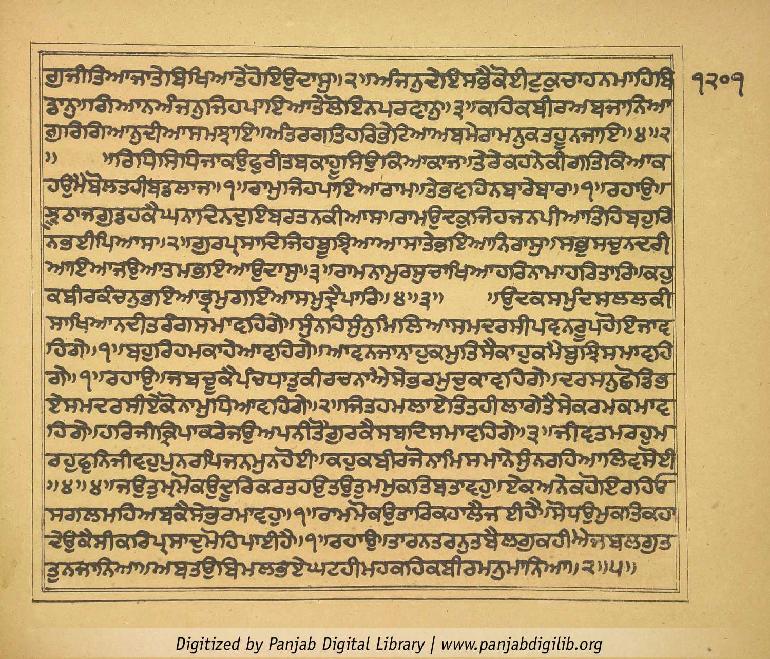 ਗੁਜੀਤਿਆਜਾਤੇਬਿਖਿਆਤੇਹੋਇਉਦਾਸੁ॥੨॥ਅੰਜਨੁਦੇਇਸਭੈਕੋਈਟੁਕੁਚਾਹਨਮਾਹਿਬਿ
ਡਾਨੁ॥ਗਿਆਨਅੰਜਨੁਜਿਹਪਾਇਆਤੇਲੋਇਨਪਰਵਾਨੁ॥੩॥ਕਹਿਕਬੀਰਅਬਜਾਨਿਆ
ਗੁਰਿਗਿਆਨੁਦੀਆਸਮਝਾਇ॥ਅੰਤਰਗਤਿਹਰਿਭੇਟਿਆਅਬਮੇਰਾਮਨੁਕਤਹੂਨਜਾਇ॥੪॥੨
॥ ॥ਰਿਧਿਸਿਧਿਜਾਕਉਫੁਰੀਤਬਕਾਹੂਸਿਉਕਿਆਕਾਜ॥ਤੇਰੇਕਹਨੇਕੀਗਤਿਕਿਆਕ
ਹਉਮੈਬੋਲਤਹੀਬਡਲਾਜ॥੧॥ਰਾਮੁਜਿਹਪਾਇਆਰਾਮ॥ਤੇਭਵਹਿਨਬਾਰੇਬਾਰ॥੧॥ਰਹਾਉ॥
ਝੂਠਾਜਗੁਡਹਕੈਘਨਾਦਿਨਦੁਇਬਰਤਨਕੀਆਸ॥ਰਾਮਉਦਕੁਜਿਹਜਨਪੀਆਤਿਹਿਬਹੁਰਿ
ਨਭਈਪਿਆਸ॥੨॥ਗੁਰਪ੍ਰਸਾਦਿਜਿਹਬੂਝਿਆਆਸਾਤੇਭਇਆਨਿਰਾਸੁ॥ਸਭੁਸਚੁਨਦਰੀ
ਆਇਆਜਉਆਤਮਭਇਆਉਦਾਸੁ॥੩॥ਰਾਮਨਾਮੁਰਸੁਚਾਖਿਆਹਰਿਨਾਮਾਹਰਿਤਾਰਿ॥ਕਹੁ
ਕਬੀਰਕੰਚਨੁਭਇਆਭ੍ਰਮੁਗਇਆਸਮੁਦ੍ਰੈਪਾਰਿ॥੪॥੩॥ ॥ਉਦਕਸਮੁੰਦਸਲਲਕੀ
ਸਾਖਿਆਨਦੀਤਰੰਗਸਮਾਵਹਿਗੇ॥ਸੁੰਨਹਿਸੁੰਨੁਮਿਲਿਆਸਮਦਰਸੀਪਵਨਰੂਪਹੋਇਜਾਵ
ਹਿਗੇ॥੧॥ਬਹੁਰਿਹਮਕਾਹੇਆਵਹਿਗੇ॥ਆਵਨਜਾਨਾਹੁਕਮੁਤਿਸੈਕਾਹੁਕਮੈਬੁਝਿਸਮਾਵਹਿ
ਗੇ॥੧॥ਰਹਾਉ॥ਜਬਚੂਕੈਪੰਚਧਾਤੁਕੀਰਚਨਾਐਸੇਭਰਮੁਚੁਕਾਵਹਿਗੇ॥ਦਰਸਨੁਛੋਡਿਭ
ਏਸਮਦਰਸੀਏਕੋਨਾਮੁਧਿਆਵਹਿਗੇ॥੨॥ਜਿਤਹਮਲਾਏਤਿਤਹੀਲਾਗੇਤੈਸੇਕਰਮਕਮਾਵ
ਹਿਗੇ॥ਹਰਿਜੀਕ੍ਰਿਪਾਕਰੇਜਉਅਪਨੀਤੌਗੁਰਕੇਸਬਦਿਸਮਾਵਹਿਗੇ॥੩॥ਜੀਵਤਮਰਹੁਮ
ਰਹੁਫੁਨਿਜੀਵਹੁਪੁਨਰਪਿਜਨਮੁਨਹੋਈ॥ਕਹੁਕਬੀਰਜੋਨਾਮਿਸਮਾਨੇਸੁੰਨਰਹਿਆਲਿਵਸੋਈ
॥੪॥੪॥ਜਉਤੁਮ੍ਮੋਕਉਦੂਰਿਕਰਤਹਉਤਉਤੁਮਮੁਕਤਿਬਤਾਵਹੁ॥ਏਕਅਨੇਕਹੋਇਰਹਿਓ
ਸਗਲਮਹਿਅਬਕੈਸੇਭਰਮਾਵਹੁ॥੧॥ਰਾਮਮੋਕਉਤਾਰਿਕਹਾਲੈਜਈਹੈ॥ਸੋਧਉਮੁਕਤਿਕਹਾ
ਦੇਉਕੈਸੀਕਰਿਪ੍ਰਸਾਦੁਮੋਹਿਪਾਈਹੈ॥੧॥ਰਹਾਉ॥ਤਾਰਨਤਰਨੁਤਬੈਲਗੁਕਹੀਐਜਬਲਗੁਤ
ਤੁਨਜਾਨਿਆ॥ਅਬਤਉਬਿਮਲਭਏਘਟਹੀਮਹਿਕਹਿਕਬੀਰਮਨੁਮਾਨਿਆ॥੨॥੫॥
੧੨੦੧
Digitized by Panjab Digital Library | www.panjabdigilib.org